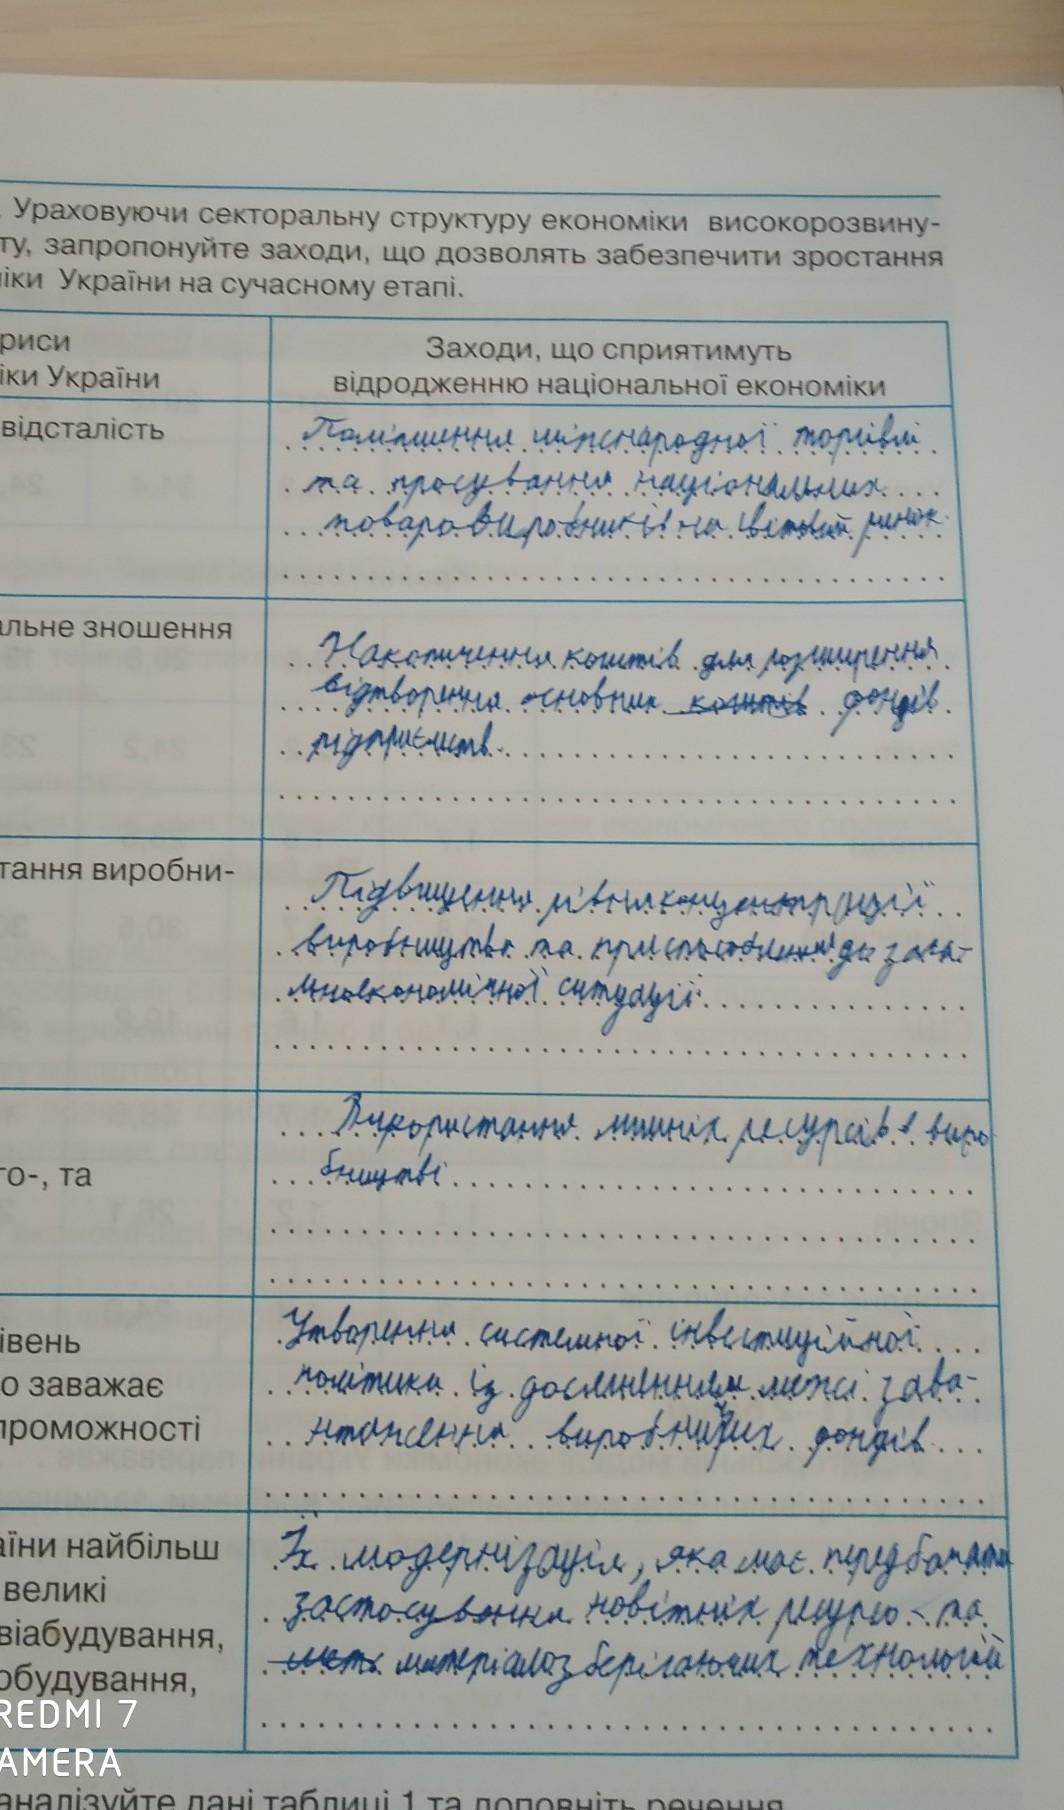 . Ураховуючи секторальну структуру економіки високорозвину-
ту, запропонуйте заходи, що дозволять забезпечити зростання
іки України на сучасному етапі.
риси
іки України
Заходи, що сприятимуть
відродженню національної економіки
відсталість
Поліпшення міжнародної торгівлі
та просування національних
товаровиробників на світовий ринок
альне зношення
Накопичення коштів для розширення
відтворення основних коштів фондів
підприємств.
тання виробни-
Підвищення рівня концентрації
виробництва та до зага-
льноекономічної ситуації.
го-, та
Використання ресурсів в виро
бництві
івень
о заважає
проможності
Утворення системної інвестиційної
політики із досягненням межі зава-
нтаження виробничих фондів
аїни найбільш
великі
віабудування,
обудування,
Їх модернізація, яка має передбачати
застосування новітніх ресурсо- та
матеріалозберігаючих технологій
REDMI 7
AMERA
аналізуйте дані таблиці 1 та доповніть речення